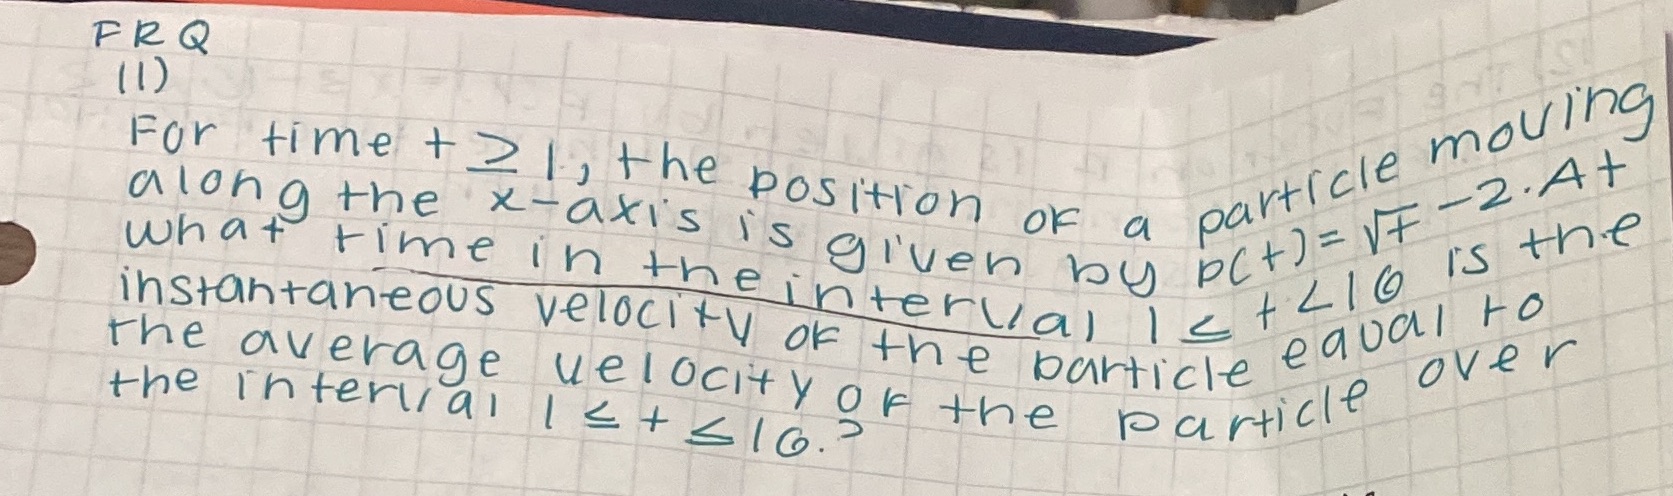 FRQ
(1)
For time t ≥ 1, the position of a particle moving
along the x-axis is given by p(t) = √t - 2. At
what time in the interval 1 ≤ t < 16 is the
instantaneous velocity of the particle equal to
the average velocity of the particle over
the interval 1 ≤ t ≤ 16.?